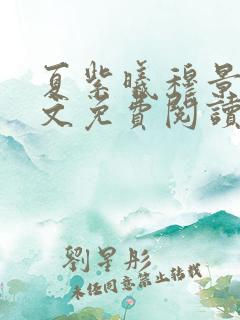 夏紫曦穆景
文免費閱讀
劉星彤
未经同意禁止转载